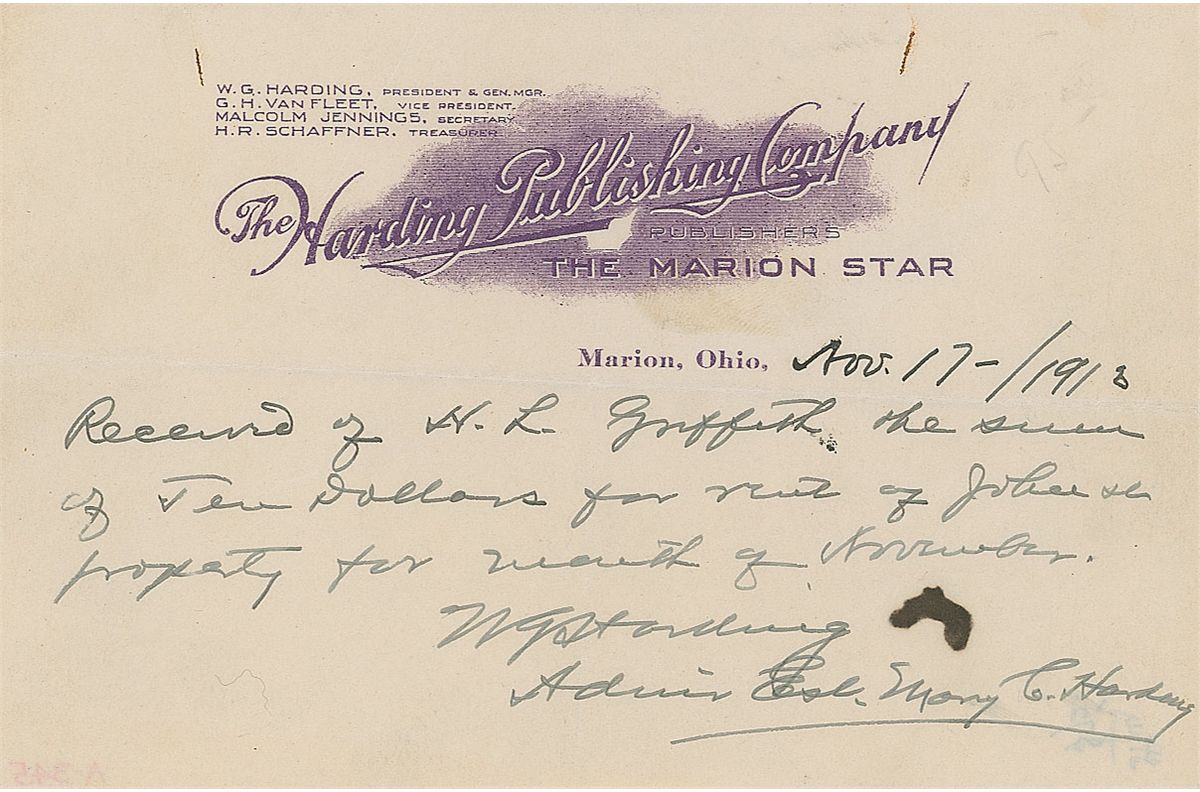 W. G. HARDING, PRESIDENT & GEN. MGR.
G. H. VAN FLEET, VICE PRESIDENT.
MALCOLM JENNINGS, SECRETARY
H. R. SCHAFFNER, TREASURER
The Harding Publishing Company
PUBLISHERS
THE MARION STAR
Marion, Ohio, Nov. 17-/1913
Received of H. L. Griffith the sum
of Ten Dollars for rent of John St
property for month of November.
WGHarding
Admir Est. Mary C. Harding
A 345